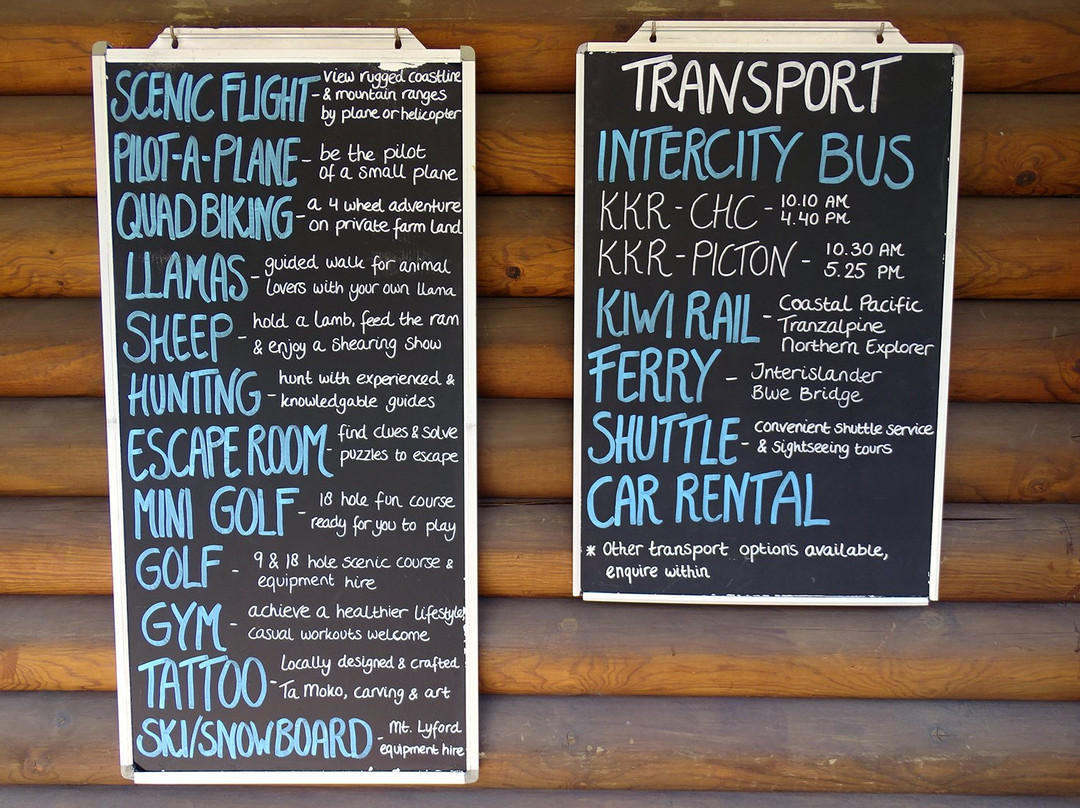 SCENIC FLIGHT - view rugged coastline
& mountain ranges
by plane or helicopter
PILOT-A-PLANE - be the pilot
of a small plane
QUAD BIKING - a 4 wheel adventure
on private farm land
LLAMAS - guided walk for animal
lovers with your own llama
SHEEP - hold a lamb, feed the ram
& enjoy a shearing show
HUNTING - hunt with experienced &
knowledgable guides
ESCAPE ROOM - find clues & solve
puzzles to escape
MINI GOLF - 18 hole fun course
ready for you to play
GOLF - 9 & 18 hole scenic course &
equipment hire
GYM - achieve a healthier lifestyle,
casual workouts welcome
TATTOO - Locally designed & crafted
Ta Moko, carving & art
SKI/SNOWBOARD - Mt. Lyford
equipment hire
TRANSPORT
INTERCITY BUS
KKR - CHC - 10.10 AM
4.40 PM
KKR - PICTON - 10.30 AM
5.25 PM
KIWI RAIL - Coastal Pacific
Tranzalpine
Northern Explorer
FERRY - Interislander
Blue Bridge
SHUTTLE - convenient shuttle service
& sightseeing tours
CAR RENTAL
* Other transport options available,
enquire within